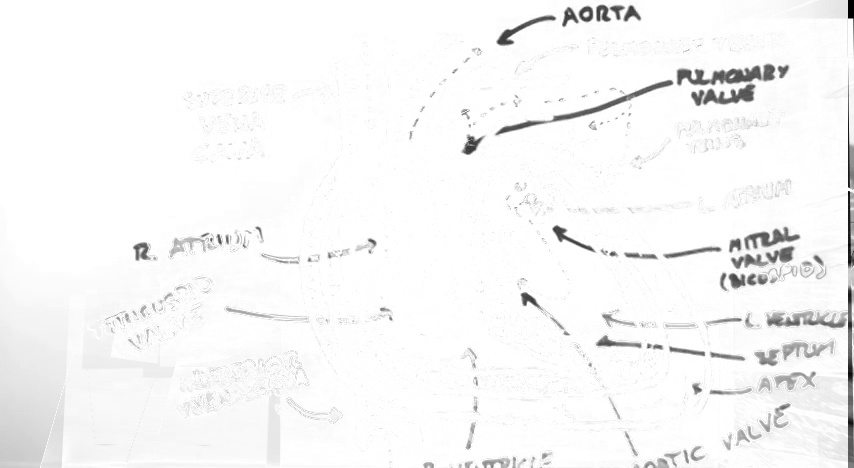 AORTA
PULMONARY TRUNK
PULMONARY
VALVE
SUPERIOR
VENA
CAVA
PULMONARY
VEINS
L. ATRIUM
R. ATRIUM
MITRAL
VALVE
(BICUSPID)
TRICUSPID
VALVE
L. VENTRICLE
SEPTUM
INFERIOR
VENA CAVA
APEX
R. VENTRICLE
AORTIC VALVE